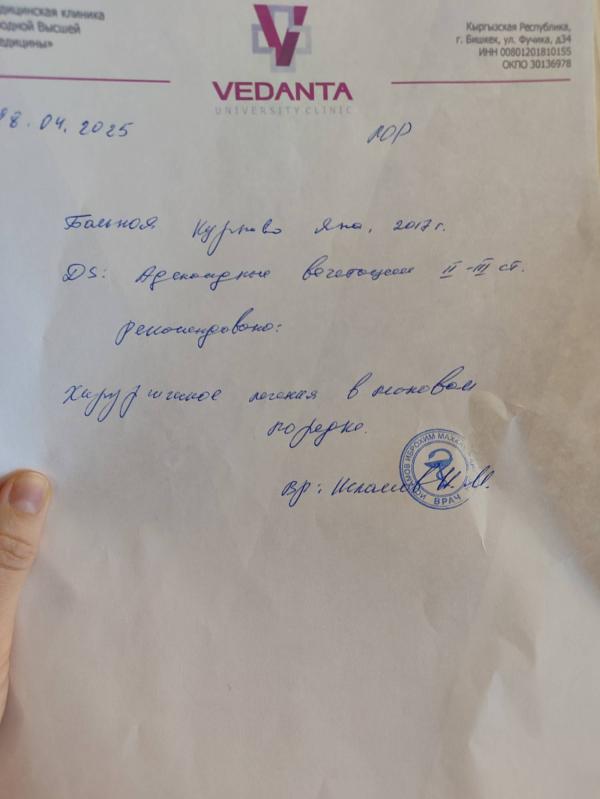 дицинская клиника
родной Высшей
едицины»
V
VEDANTA
UNIVERSITY CLINIC
Кыргызская Республика,
г. Бишкек, ул. Фучика, д34
ИНН 00801201810155
ОКПО 30136978
28.04.2025
ЛОР
Больная Яна, 2017 г.
DS: Аденоидные вегетации II-III ст.
рекомендовано:
Хирургическое лечения в плановом
порядке.
Вр: Исламов И.М.
ИБРОХИМ
ВРАЧ